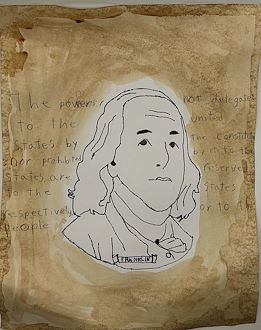 The powers not delegated
to the united
States by the Constitu
nor prohibited by it to the
States, are reserve
to the States
respectively or to the
people
FRANKLIN